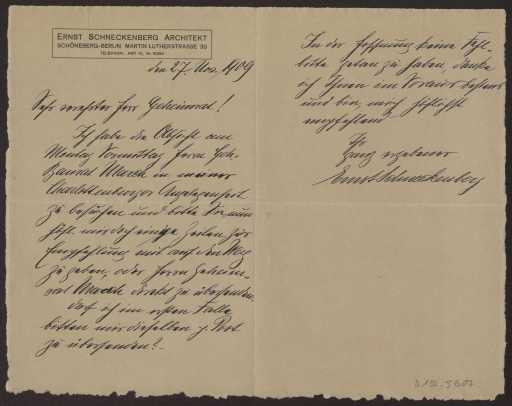 ERNST SCHNECKENBERG ARCHITEKT
SCHÖNEBERG-BERLIN MARTIN LUTHERSTRASSE
TELEPHON: AMT
den 27. Nov. 1909
Sehr verehrter Herr Geheimrat!
Ich habe die Absicht am
Montag Vormittag Herrn Geh-
heimrat March in meiner
Charlottenburger Angelegenheit
zu besuchen und bitte Sie, nun
mir doch einige Zeilen zur
Empfehlung mit auf den Weg
zu geben, oder Herrn Geheim-
rat March direkt zu übersenden.
darf ich im ersten Falle
bitten mir dieselben p. Post
zu übersenden? -
In der Hoffnung keine Fehl-
bitte getan zu haben, danke
ich Ihnen im Voraus bestens
und bin, mich höflichst
empfehlend
Ihr
ganz ergebener
Ernst Schneckenberg